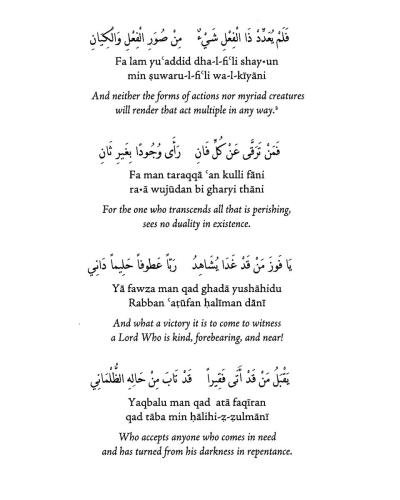 فَلَمْ يُعَدِّدْ ذَا الْفِعْلِ شَيْءٌ مِنْ صُوَرِ الْفِعْلِ وَالْكِيَانِ
Fa lam yuʿaddid dha-l-fiʿli shay•un
min ṣuwaru-l-fiʿli wa-l-kīyāni
And neither the forms of actions nor myriad creatures
will render that act multiple in any way.⁸
فَمَنْ تَرَقَّى عَنْ كُلِّ فَانِ رَأَى وُجُودًا بِغَيرِ ثَانِ
Fa man taraqqā ʿan kulli fāni
ra•ā wujūdan bi gharyi thāni
For the one who transcends all that is perishing,
sees no duality in existence.
يَا فَوزَ مَنْ قَدْ غَدَا يُشَاهِدُ رَبّاً عَطُوفاً حَلِيماً دَانِي
Yā fawza man qad ghadā yushāhidu
Rabban ʿaṭūfan ḥalīman dānī
And what a victory it is to come to witness
a Lord Who is kind, forebearing, and near!
يَقْبَلُ مَنْ قَدْ أَتَى فَقِيراً قَدْ تَابَ مِنْ حَالِهِ الظُّلْمَانِي
Yaqbalu man qad atā faqīran
qad tāba min ḥālihi-ẓ-ẓulmānī
Who accepts anyone who comes in need
and has turned from his darkness in repentance.